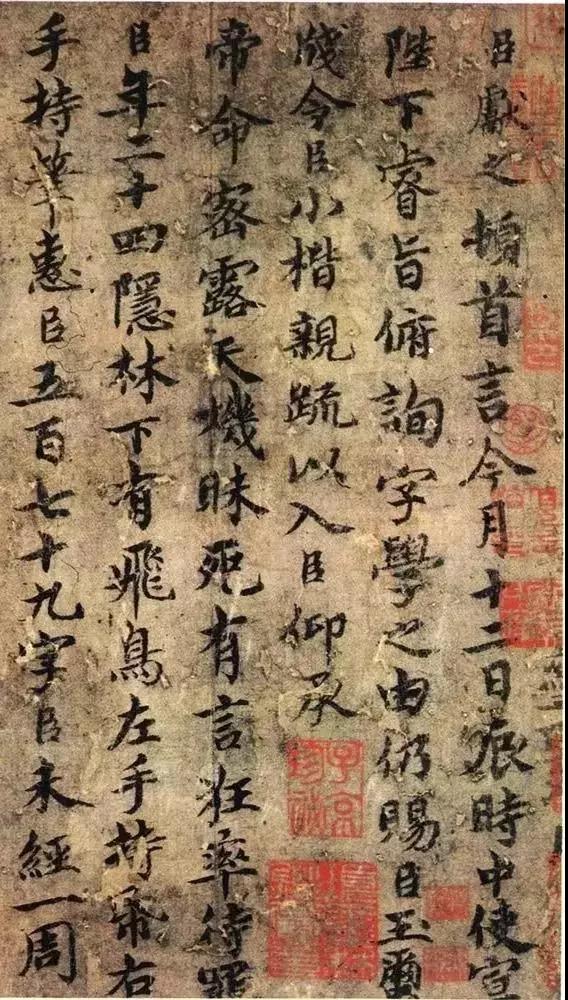 臣獻之頓首言今月十二日辰時中使宣
陛下睿旨俯詢字學之由仍賜臣玉璽
牋令臣小楷親疏以入臣仰承
帝命密露天機昧死有言狂率待罪
臣年二十四隱林下有飛鳥左手持帋右
手持筆惠臣五百七十九字臣未經一周